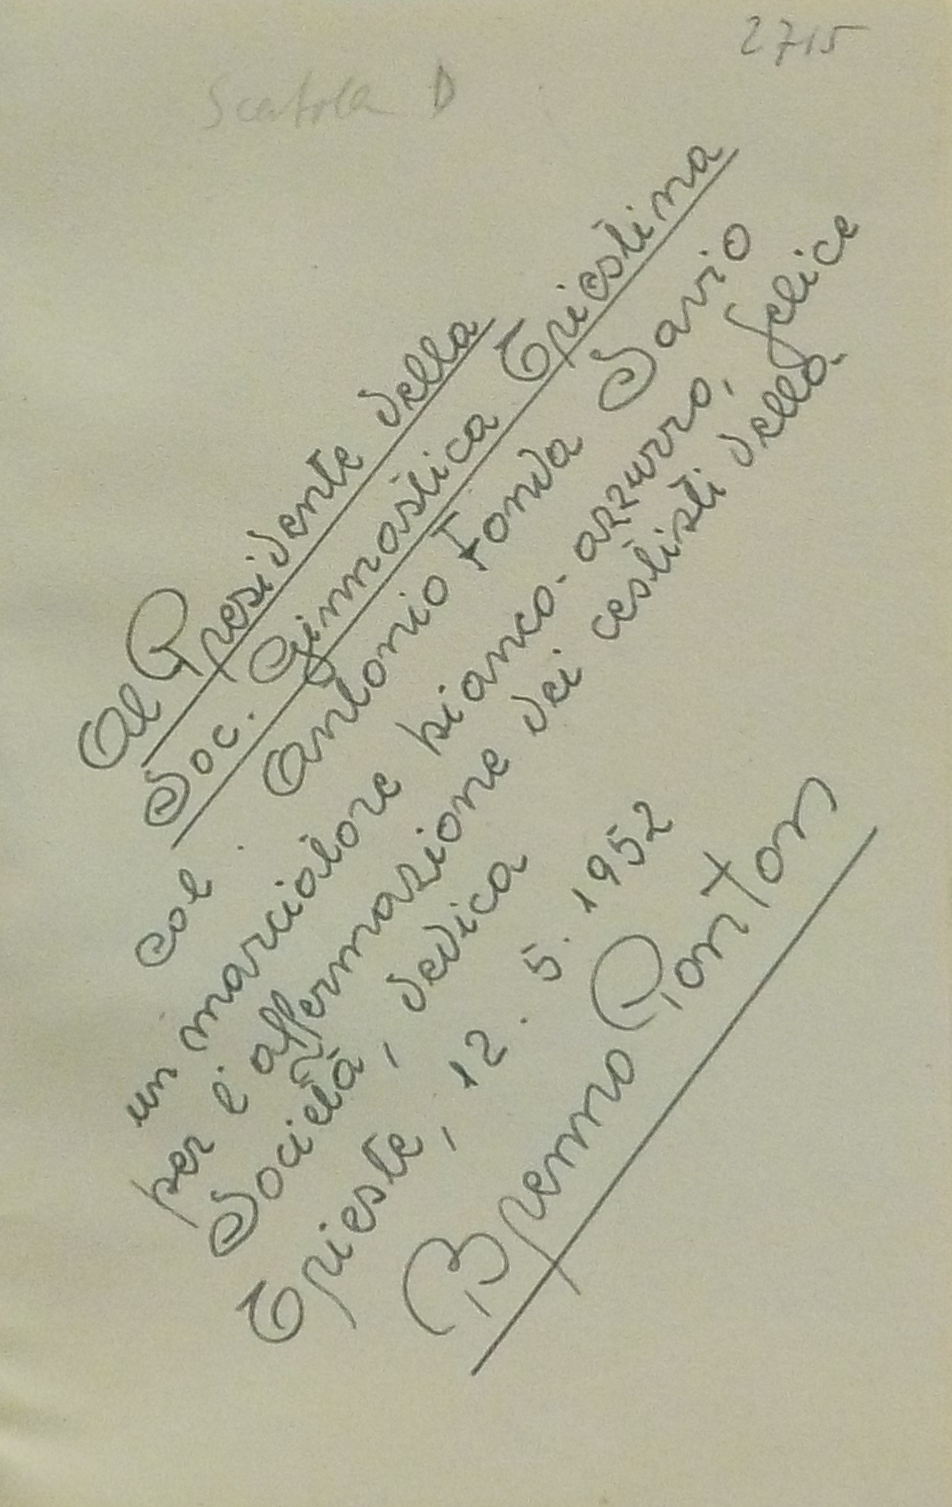 2715
Scatola D
Al Presidente della
Soc. Ginnastica Triestina
col. Antonio Fonda Savio
un marciatore bianco-azzurro, felice
per l'affermazione dei cestisti della
Società, dedica
Trieste, 12. 5. 1952
Bremno Ponton